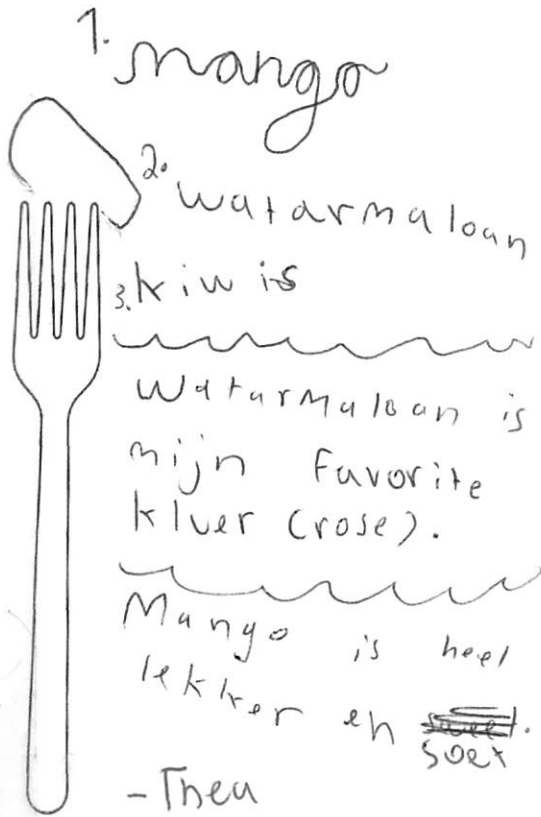 1. mango
2. watarmaloan
3. kiwis
watarmaloan is
mijn favorite
kluer (rose).
Mango is heel
lekker en soet.
- Thea